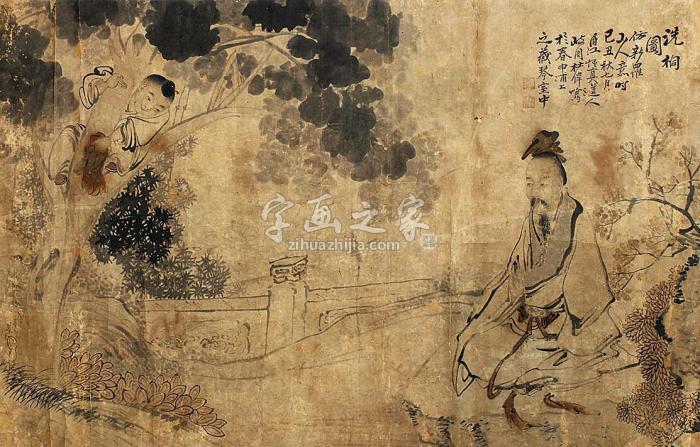 洗桐
圖
仿新羅
山人意時
己丑秋七月
真道人
於春申浦上
之藏琴室中
字画之家
zihuazhijia.com